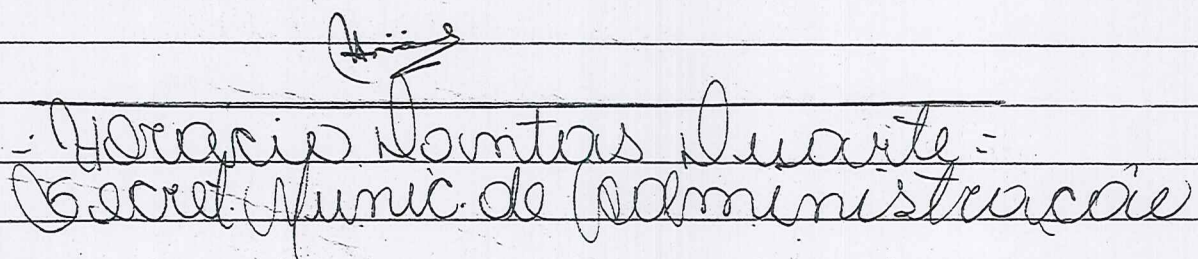 - Horacio Dantas Duarte =
Secret. Munic. de Administração